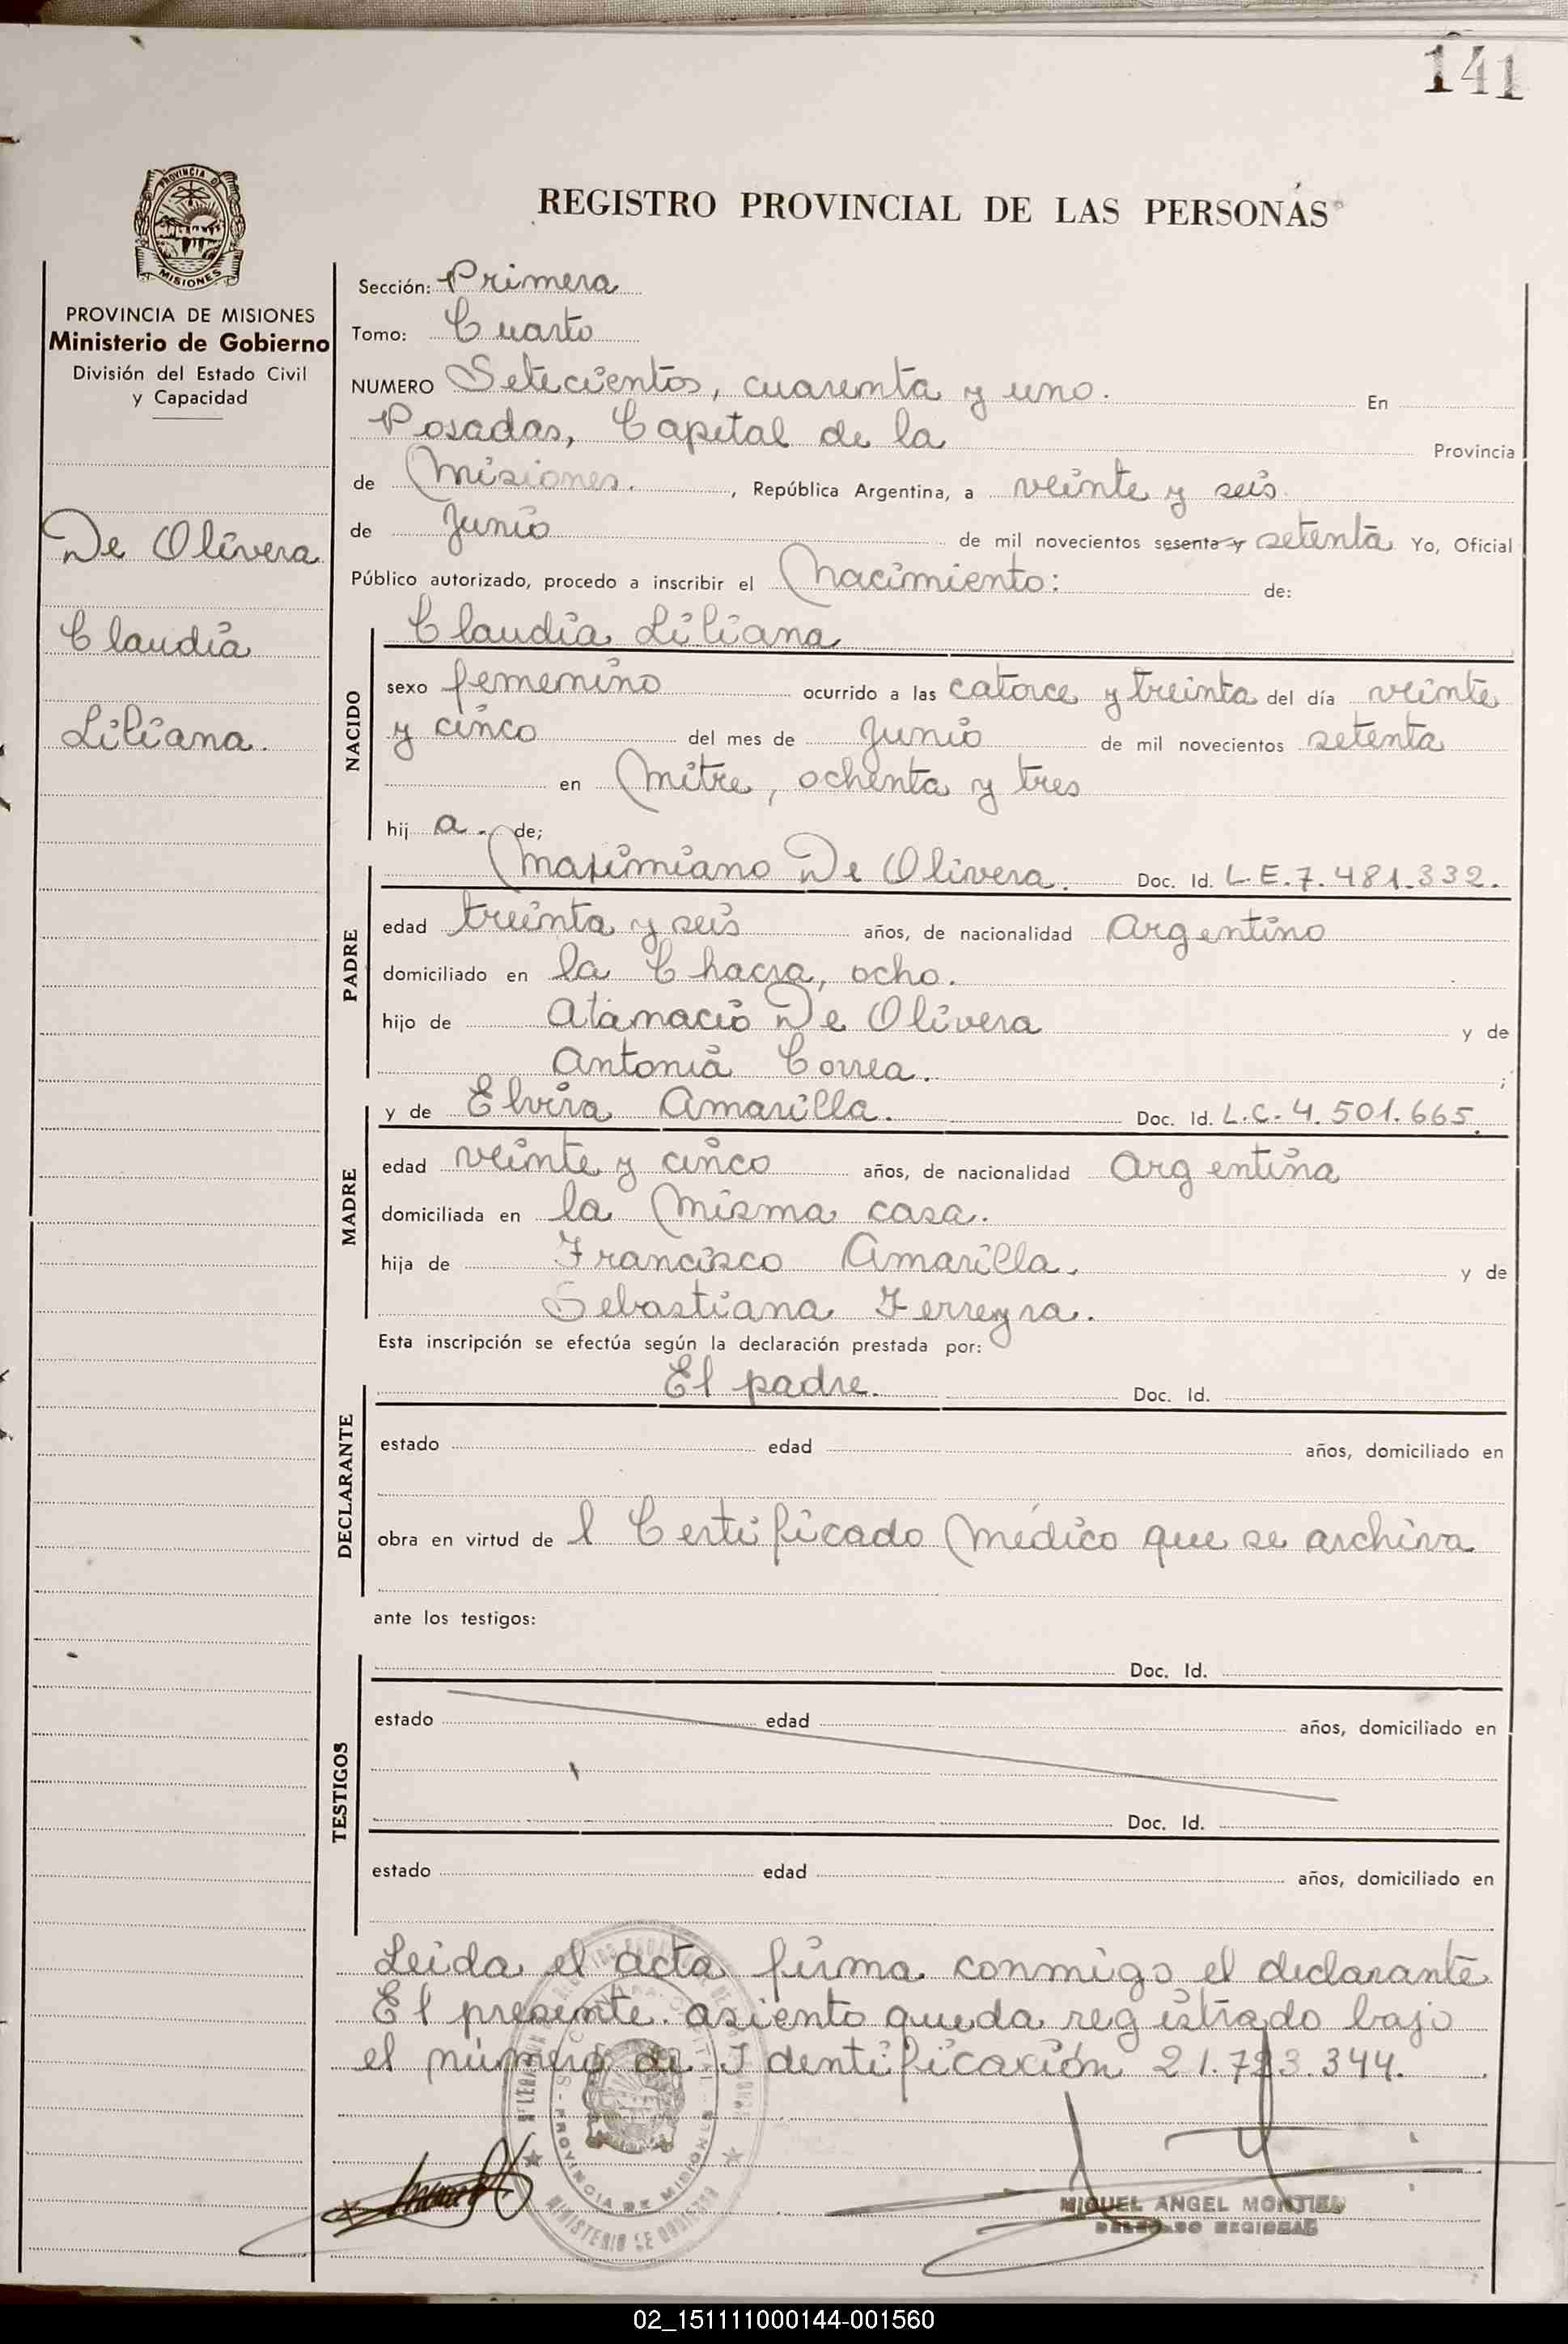 141
PROVINCIA DE
MISIONES
REGISTRO PROVINCIAL DE LAS PERSONAS
PROVINCIA DE MISIONES
Ministerio de Gobierno
División del Estado Civil
y Capacidad
De Olivera
Claudia
Liliana.
Sección: Primera
Tomo: Cuarto
NUMERO Setecientos, cuarenta y uno. En
Posadas, Capital de la Provincia
de Misiones. , República Argentina, a veinte y seis
de Junio de mil novecientos sesenta y setenta Yo, Oficial
Público autorizado, procedo a inscribir el Nacimiento: de:
NACIDO
Claudia Liliana
sexo femenino ocurrido a las catorce y treinta del día veinte
y cinco del mes de Junio de mil novecientos setenta
en Mitre, ochenta y tres
hij a. de;
PADRE
Maximiano De Olivera. Doc. Id. L.E.7.481.332.
edad treinta y seis años, de nacionalidad Argentino
domiciliado en la Chacra, ocho.
hijo de Atanacio De Olivera y de
Antonia Correa. ;
MADRE
y de Elvira Amarilla. Doc. Id. L.C.4.501.665.
edad veinte y cinco años, de nacionalidad Argentina
domiciliada en la Misma casa.
hija de Francisco Amarilla. y de
Sebastiana Ferreyra.
Esta inscripción se efectúa según la declaración prestada por:
DECLARANTE
El padre. Doc. Id.
estado edad años, domiciliado en
obra en virtud de l Certificado Médico que se archiva
ante los testigos:
TESTIGOS
Doc. Id.
estado edad años, domiciliado en
Doc. Id.
estado edad años, domiciliado en
Leida el acta firma conmigo el declarante
El presente asiento queda registrado bajo
el número de Identificación 21.723.344.
PROVINCIA DE MISIONES
MINISTERIO DE GOBIERNO
MIGUEL ANGEL MONTIEL
DELEGADO REGIONAL
02_151111000144-001560